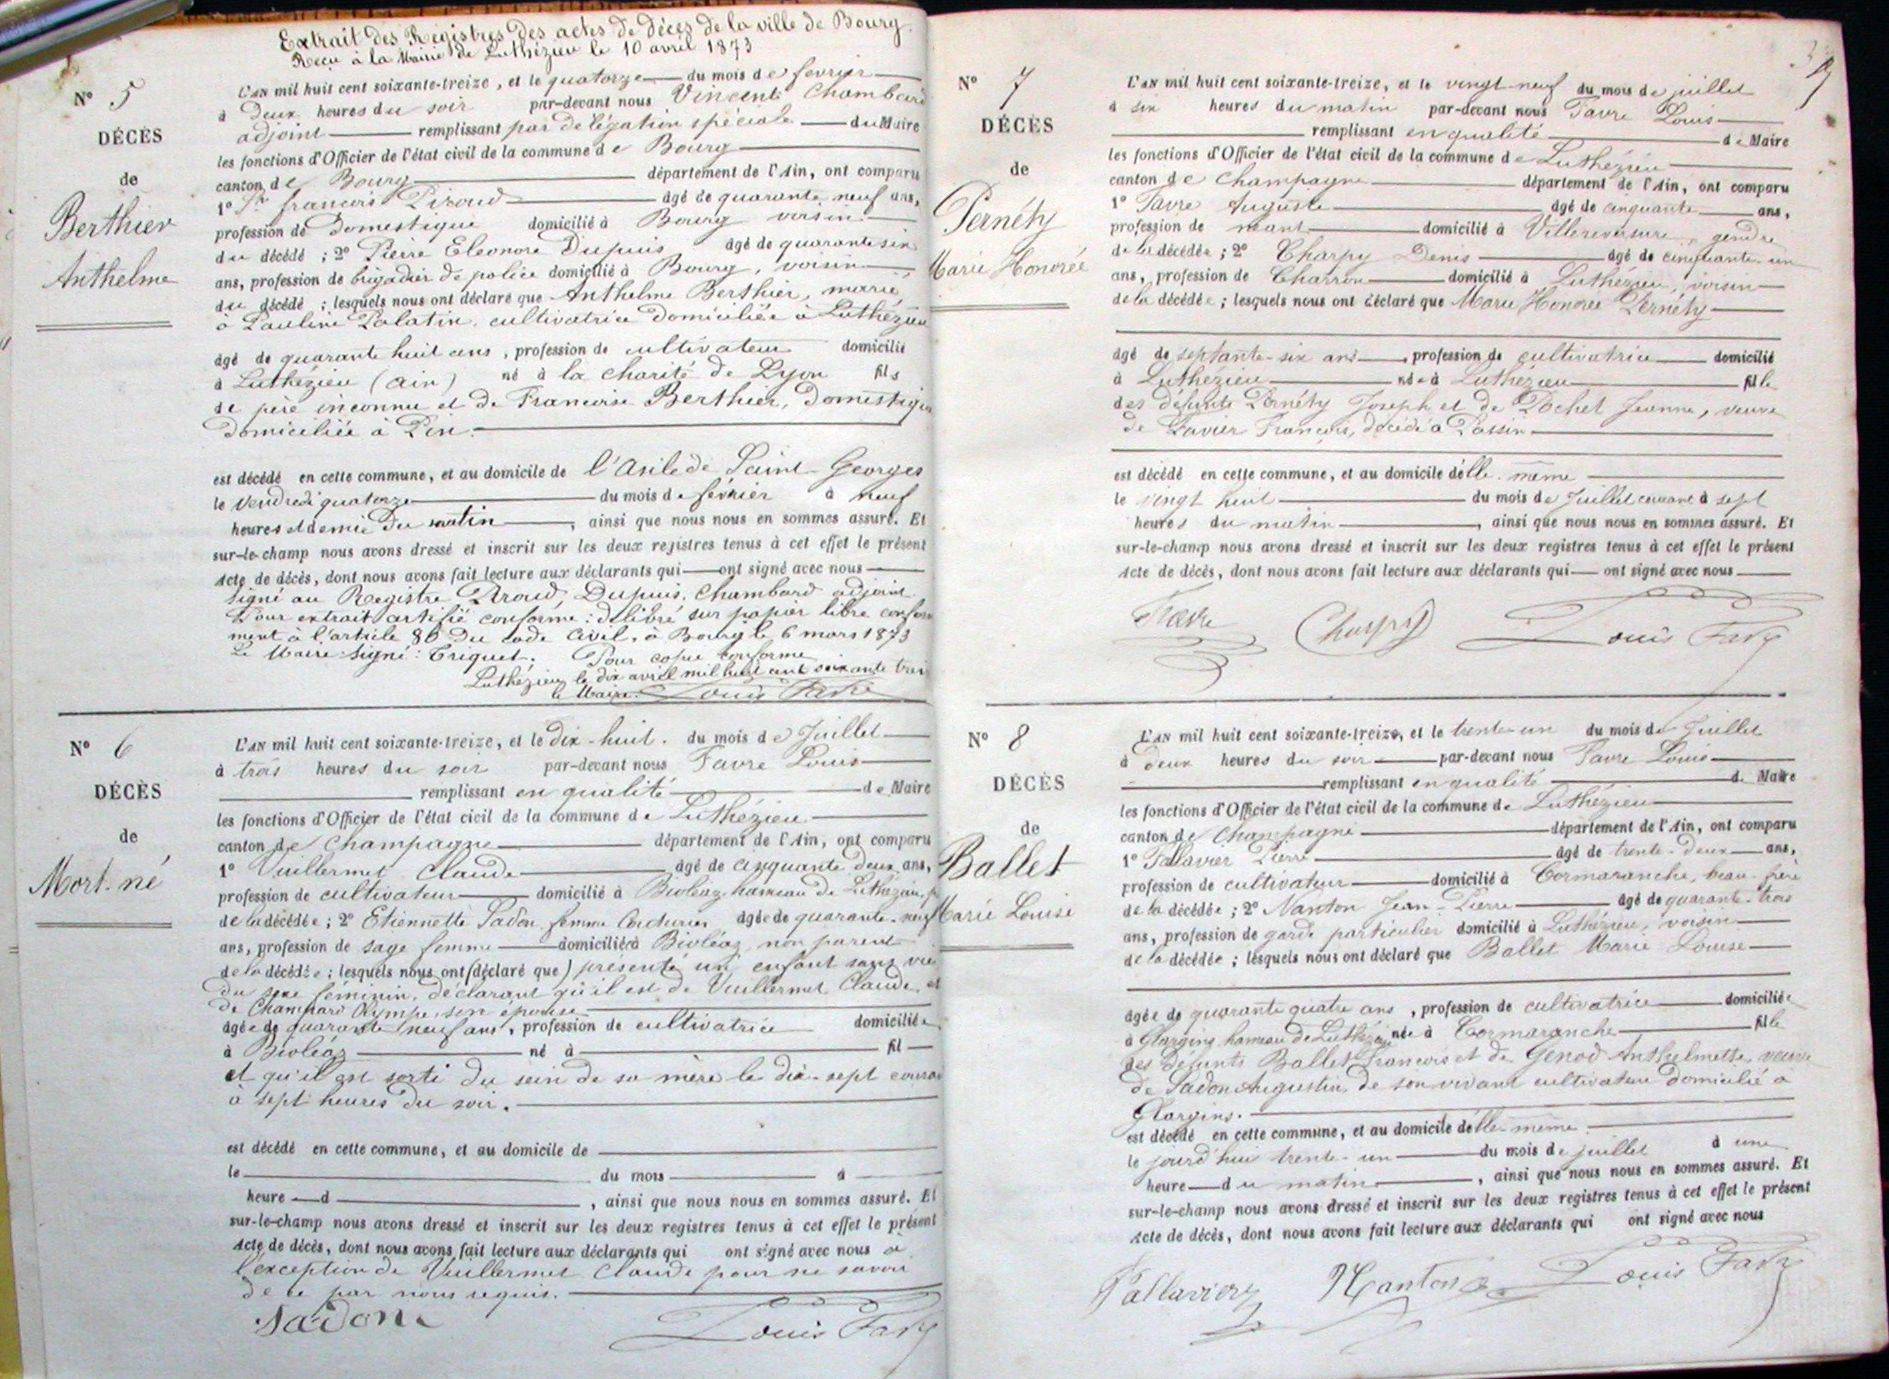 Extrait des Registres des actes de décès de la ville de Bourg
Reçu à la Mairie de Luthézieu le 10 avril 1873
N° 5
DÉCÈS
de
Berthier
Anthelme
L'AN mil huit cent soixante-treize, et le quatorze du mois de fevrier
à deux heures du soir par-devant nous Vincent Chambard
adjoint remplissant par délégation spéciale du Maire
les fonctions d'Officier de l'état civil de la commune de Bourg
canton de Bourg département de l'Ain, ont comparu
1° françois Piroud âgé de quarante neuf ans,
profession de Domestique domicilié à Bourg voisin
du décédé ; 2° Pierre Eleonore Dupuis âgé de quarante six
ans, profession de brigadier de police domicilié à Bourg, voisin
du décédé ; lesquels nous ont déclaré que Anthelme Berthier, marié
à Pauline Palatin, cultivatrice domiciliée à Luthézieu
âgé de quarante huit ans, profession de cultivateur domicilié
à Luthézieu (Ain) né à la charité de Lyon fils
de père inconnu et de Francoise Berthier, Domestique
domiciliée à
est décédé en cette commune, et au domicile de l'Asile de Saint-Georges
le vendredi quatorze du mois de février à neuf
heures et demie du matin, ainsi que nous nous en sommes assuré. Et
sur-le-champ nous avons dressé et inscrit sur les deux registres tenus à cet effet le présent
Acte de décès, dont nous avons fait lecture aux déclarants qui ont signé avec nous
signé au Registre Piroud, Dupuis, Chambard adjoint
Pour extrait certifié conforme : délibré sur papier libre conformé
ment à l'article 80 du code Civil, à Bourg le 6 mars 1873
Le Maire signé : Triquet. Pour copie conforme
Luthézieu le dix avril mil huit cent soixante treize
le Maire. Louis Favre
N° 6
DÉCÈS
de
Mort-né
L'AN mil huit cent soixante-treize, et le dix-huit. du mois de Juillet
à trois heures du soir par-devant nous Favre Louis
remplissant en qualité de Maire
les fonctions d'Officier de l'état civil de la commune de Luthézieu
canton de Champagne département de l'Ain, ont comparu
1° Vuillermet Claude âgé de cinquante deux ans,
profession de cultivateur domicilié à Bioléaz hameau de Luthézieu,
de la décédée ; 2° Etiennette Sadon femme Cordurier âgée de quarante-neuf
ans, profession de sage femme domiciliée à Bioléaz, non parent
de la décédée ; lesquels nous ont (déclaré que) présenté un enfant sans vie
du sexe féminin, déclarant qu'il est de Vuillermet Claude, et
de Champard Olympe, son épouse
âgée de quarante neuf ans, profession de cultivatrice domiciliée
à Bioléaz né à fil
et qu'il est sorti du sein de sa mère le dix-sept courant
à sept heures du soir.
est décédé en cette commune, et au domicile de
le du mois à
heure d , ainsi que nous nous en sommes assuré. Et
sur-le-champ nous avons dressé et inscrit sur les deux registres tenus à cet effet le présent
Acte de décès, dont nous avons fait lecture aux déclarants qui ont signé avec nous à
l'exception de Vuillermet Claude pour ne savoir
de ce par nous requis.
Sadon
Louis Favre
N° 7
DÉCÈS
de
Pernéty
Marie Honorée
L'AN mil huit cent soixante-treize, et le vingt-neuf du mois de juillet
à six heures du matin par-devant nous Favre Louis
remplissant en qualité de Maire
les fonctions d'Officier de l'état civil de la commune de Luthézieu
canton de Champagne département de l'Ain, ont comparu
1° Favre Auguste âgé de cinquante ans,
profession de domicilié à Villereversure, gendre
de la décédée ; 2° Charpy Denis âgé de cinquante-un
ans, profession de Charron domicilié à Luthézieu, voisin
de la décédée ; lesquels nous ont déclaré que Marie Honorée Pernéty
âgé de septante-six ans, profession de cultivatrice domicilié
à Luthézieu née à Luthézieu fille
des défunts Pernéty Joseph et de Rochet Jeanne, veuve
de François, décédé à Passin
est décédé en cette commune, et au domicile d'elle-même
le vingt huit du mois de Juillet courant à sept
heures du matin, ainsi que nous nous en sommes assuré. Et
sur-le-champ nous avons dressé et inscrit sur les deux registres tenus à cet effet le présent
Acte de décès, dont nous avons fait lecture aux déclarants qui ont signé avec nous
Favre Charpy Louis Favre
N° 8
DÉCÈS
de
Ballet
Marie Louise
L'AN mil huit cent soixante-treize, et le trente-un du mois de Juillet
à deux heures du soir par-devant nous Favre Louis
remplissant en qualité de Maire
les fonctions d'Officier de l'état civil de la commune de Luthézieu
canton de Champagne département de l'Ain, ont comparu
1° Pallavier Pierre âgé de trente-deux ans,
profession de cultivateur domicilié à Cormaranche, beau-frère
de la décédée ; 2° Nanton Jean-Pierre âgé de quarante-trois
ans, profession de garde particulier domicilié à Luthézieu, voisin
de la décédée ; lesquels nous ont déclaré que Ballet Marie Louise
âgée de quarante quatre ans, profession de cultivatrice domiciliée
à Glargins hameau de Luthézieu née à Cormaranche fille
des défunts Ballet Francois et de Genod Anthelmette, veuve
de Sadon Augustin, de son vivant cultivateur domicilié à
Glargins.
est décédé en cette commune, et au domicile d'elle-même
le jourd'hui trente-un du mois de juillet à une
heure du matin, ainsi que nous nous en sommes assuré. Et
sur-le-champ nous avons dressé et inscrit sur les deux registres tenus à cet effet le présent
Acte de décès, dont nous avons fait lecture aux déclarants qui ont signé avec nous
Pallavier Nanton Louis Favre